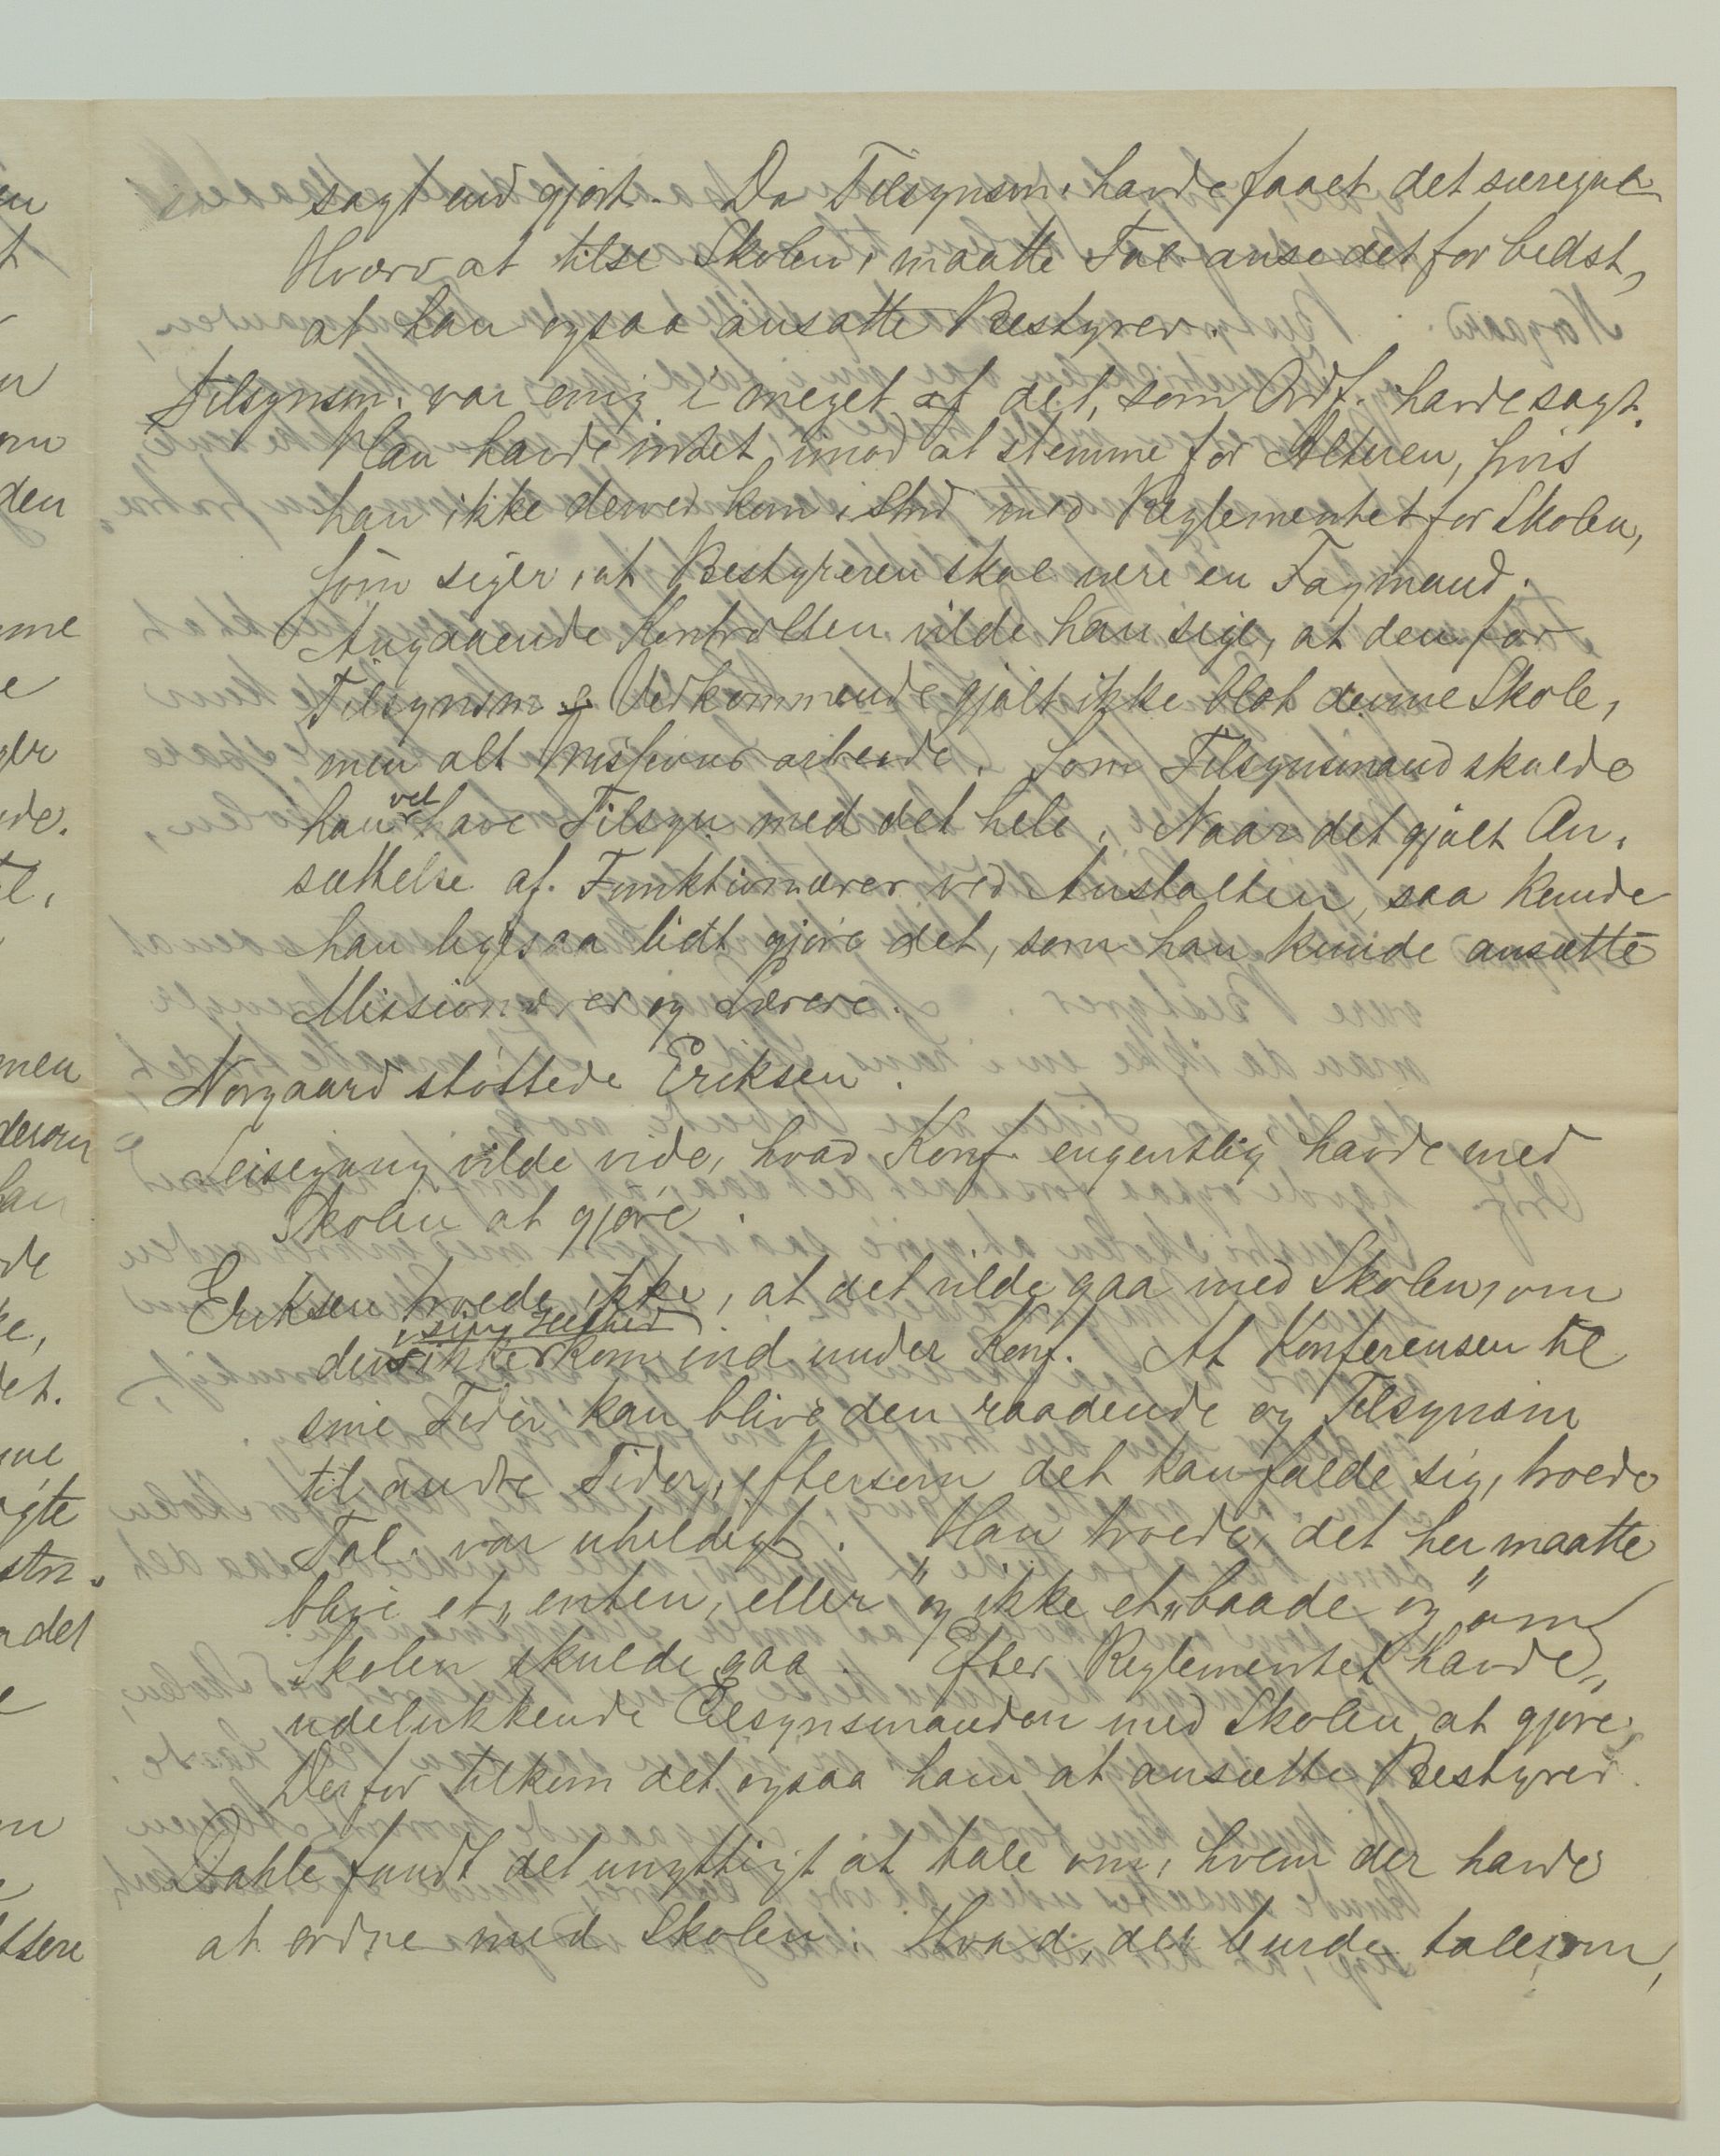 sagt end gjort. Da Tilsynsm. havde faaet det særegne
Hverv at tilse Skolen, maatte Tal. anse det for bedst,
at han ogsaa ansatte Bestyrer.
Tilsynsm. var enig i meget af det, som Ordf. havde sagt.
Han havde intet imod at stemme for Alteren, hvis
han ikke derved kom i Strid med Reglementet for Skolen,
som siger, at Bestyreren skal være en Fagmand.
Angaaende Kontrollen vilde han sige, at den for
Tilsynsm.s Vedkommende gjalt ikke blot denne Skole,
men alt Missionsarbeide. Som Tilsynsmand skulde
han vel have Tilsyn med det hele. Naar det gjalt An-
sættelse af Funktionærer ved Anstalten, saa kunde
han ligesaa lidt gjøre det, som han kunde ansætte
Missionærer og Lærere.
Norgaard støttede Eriksen.
Leisegang vilde vide, hvad Konf. engentlig havde med
Skolen at gjøre.
Eriksen troede ikke, at det vilde gaa med Skolen, om
den ikke i sin Helhed kom ind under Konf. At Konferensen til
sine Tider kan blive den raadende og Tilsynsm
til andre Tider, eftersom det kan falde sig, troede
Tal. var uheldigt. Han troede, det her maatte
blive et „enten, eller" og ikke et „baade og", om
Skolen skulde gaa. Efter Reglementet havde
udelukkende Tilsynsmanden med Skolen at gjøre,
Derfor tilkom det ogsaa ham at ansætte Bestyrer.
Dahle fandt det unyttigt at tale om, hvem der havde
at ordne med Skolen. Hvad, der burde tales om,